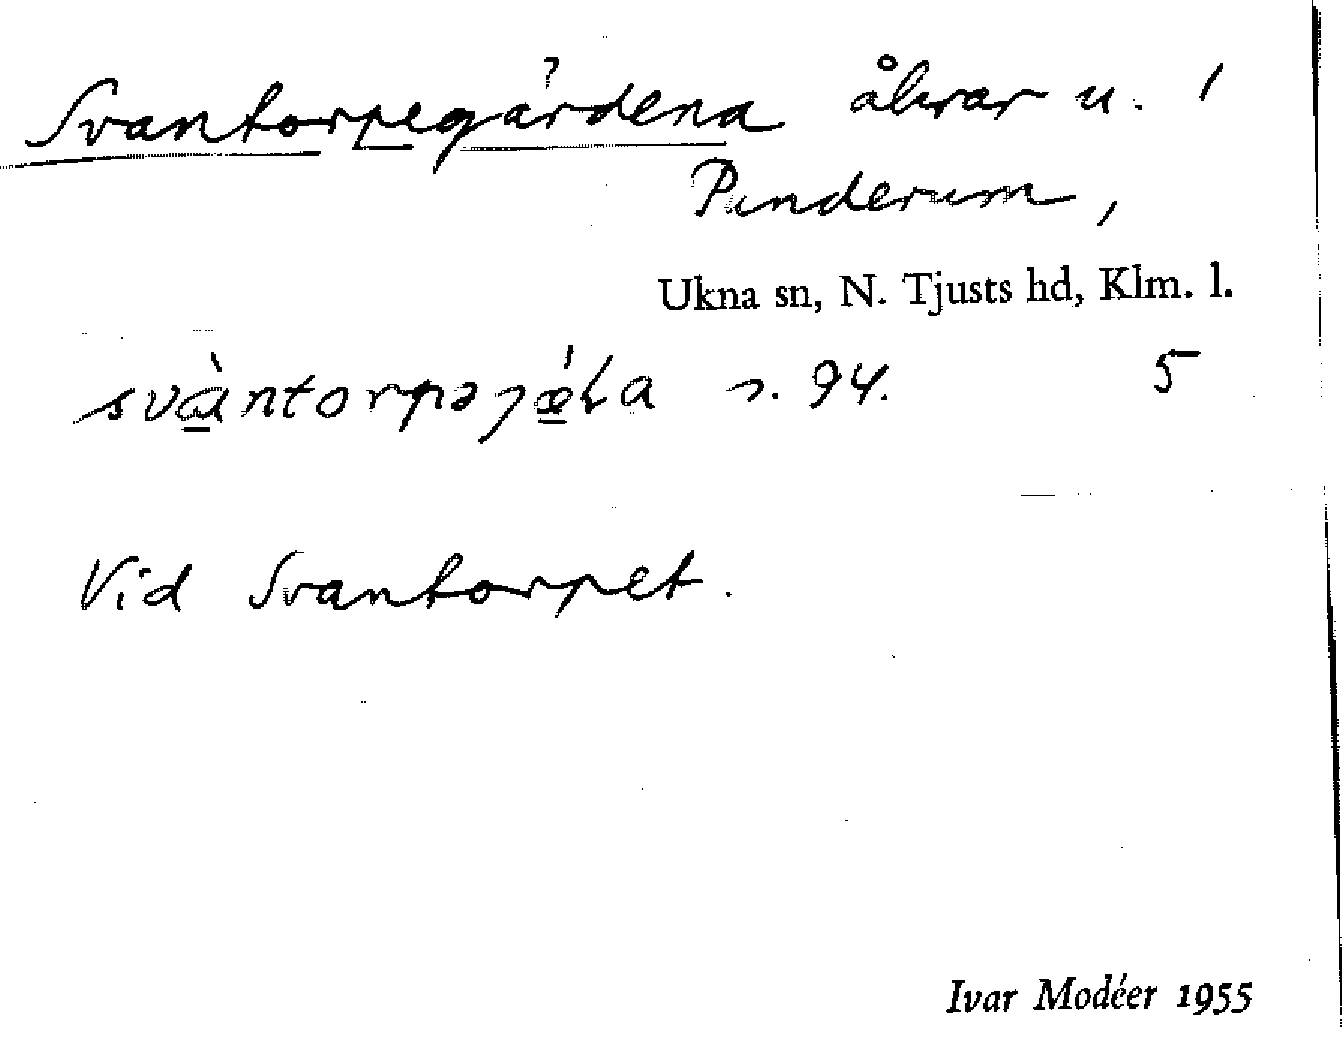 Svantorpegärdena åkrar u. 1
Punderum,
Ukna sn, N. Tjusts hd, Klm. l.
svàntorpə s. 94. 5
Vid Svantorpet.
Ivar Modéer 1955